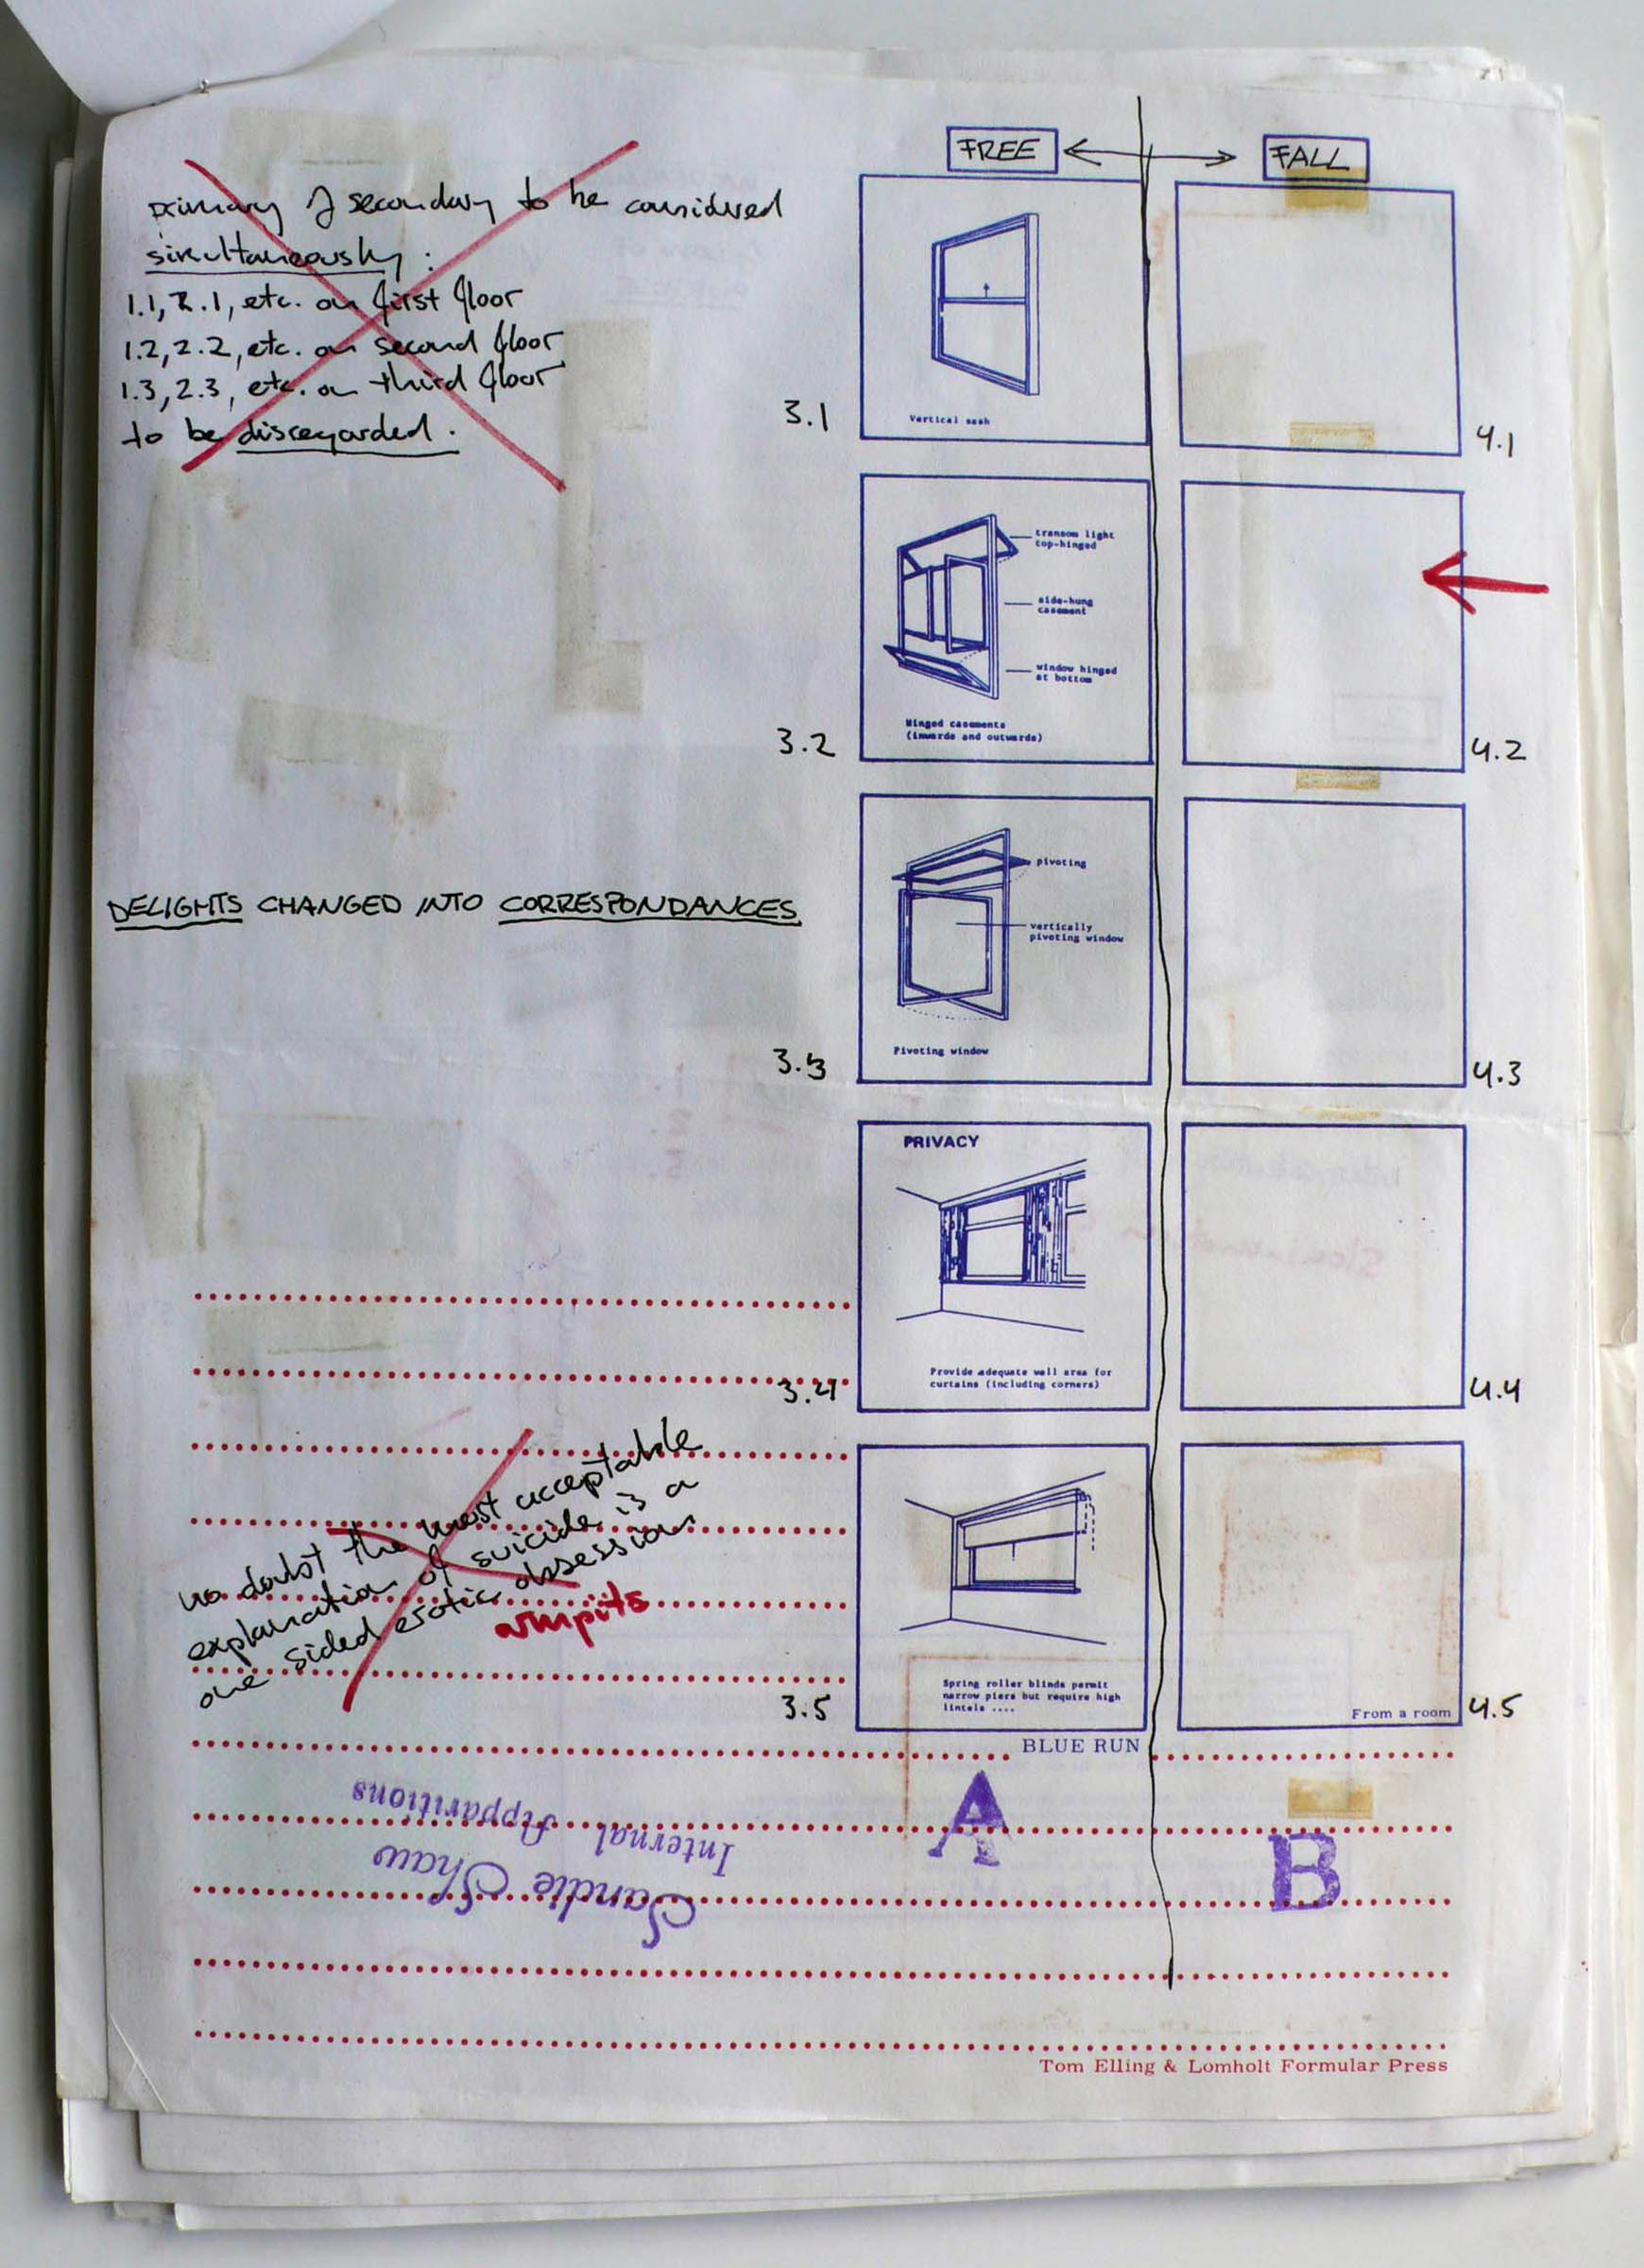 primary & secondary to be considered
simultaneously:
1.1, 2.1, etc. on first floor
1.2, 2.2, etc. on second floor
1.3, 2.3, etc. on third floor
to be disregarded.
DELIGHTS CHANGED INTO CORRESPONDANCES
no doubt the most acceptable
explanation of suicide is a
one sided erotic obsession
armpits
Sandie Shaw
Internal Apparitions
FREE
FALL
Vertical sash
3.1
4.1
transom light
top-hinged
side-hung
casement
window hinged
at bottom
Hinged casements
(inwards and outwards)
3.2
4.2
pivoting
vertically
pivoting window
Pivoting window
3.3
4.3
PRIVACY
Provide adequate wall area for
curtains (including corners)
3.4
4.4
Spring roller blinds permit
narrow piers but require high
lintels ....
3.5
From a room
4.5
BLUE RUN
A
B
Tom Elling & Lomholt Formular Press